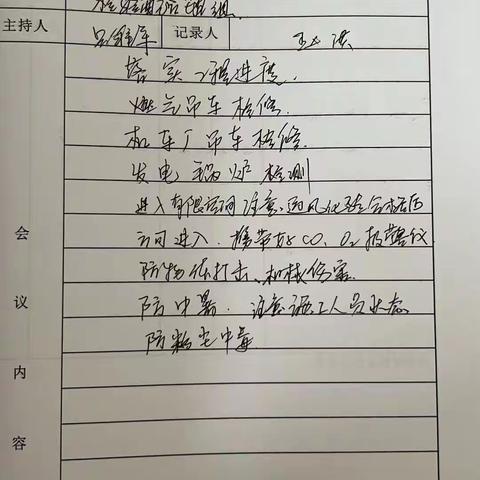 主持人 记录人
落实工程进度.
燃气吊车检修.
机车厂吊车检修.
发电锅炉检测
进入有限空间注意通风化验合格后
方可进入. 携带好CO、O₂报警仪
防物体打击、机械伤害
防中暑. 注意施工人员状态
防粉尘中毒
会
议
内
容